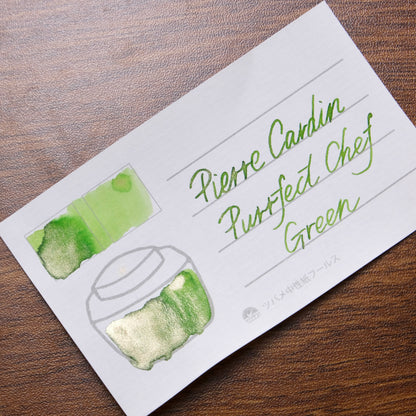 Pierre Cardin
Purrfect Chef
Green
ツバメ中性紙フールス